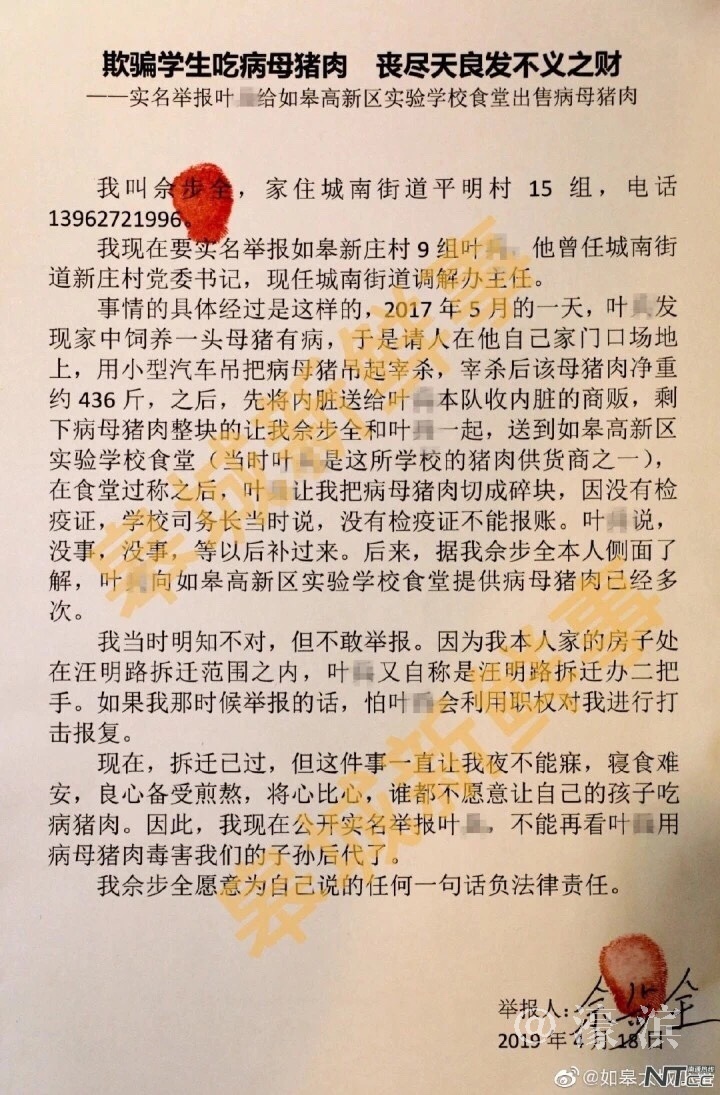 欺骗学生吃病母猪肉 丧尽天良发不义之财
——实名举报叶 给如皋高新区实验学校食堂出售病母猪肉
我叫佘步全，家住城南街道平明村 15 组，电话
13962721996。
我现在要实名举报如皋新庄村 9 组叶 ，他曾任城南街
道新庄村党委书记，现任城南街道调解办主任。
事情的具体经过是这样的，2017 年 5 月的一天，叶 发
现家中饲养一头母猪有病，于是请人在他自己家门口场地
上，用小型汽车吊把病母猪吊起宰杀，宰杀后该母猪肉净重
约 436 斤，之后，先将内脏送给叶 本队收内脏的商贩，剩
下病母猪肉整块的让我佘步全和叶 一起，送到如皋高新区
实验学校食堂（当时叶 是这所学校的猪肉供货商之一），
在食堂过称之后，叶 让我把病母猪肉切成碎块，因没有检
疫证，学校司务长当时说，没有检疫证不能报账。叶 说，
没事，没事，等以后补过来。后来，据我佘步全本人侧面了
解，叶 向如皋高新区实验学校食堂提供病母猪肉已经多
次。
我当时明知不对，但不敢举报。因为我本人家的房子处
在汪明路拆迁范围之内，叶 又自称是汪明路拆迁办二把
手。如果我那时候举报的话，怕叶 会利用职权对我进行打
击报复。
现在，拆迁已过，但这件事一直让我夜不能寐，寝食难
安，良心备受煎熬，将心比心，谁都不愿意让自己的孩子吃
病猪肉。因此，我现在公开实名举报叶 ，不能再看叶 用
病母猪肉毒害我们的子孙后代了。
我佘步全愿意为自己说的任何一句话负法律责任。
举报人：佘步全
2019 年 4 月 18 日
皋城新鲜事
皋城新鲜事
@濠滨
@如皋
NTcc